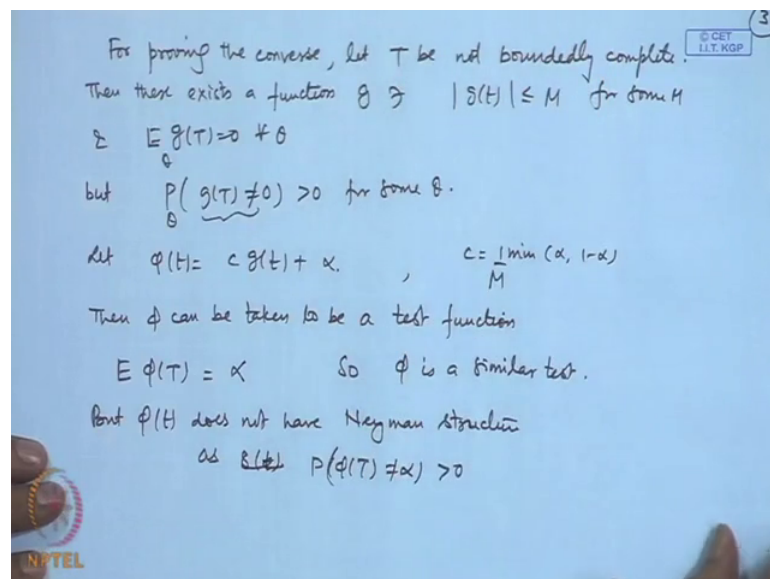 3
© CET
I.I.T. KGP
For proving the converse, let T be not boundedly complete.
Then there exists a function g ∋ |g(t)| ≤ M for some M
& E_θ g(T)=0 ∀ θ
but P_θ( g(T) ≠ 0) > 0 for some θ.
Let φ(t)= c g(t) + α. , c = 1/M min (α, 1-α)
Then φ can be taken to be a test function
E φ(T) = α So φ is a similar test.
But φ(t) does not have Neyman structure
as P(φ(T) ≠ α) > 0
NPTEL